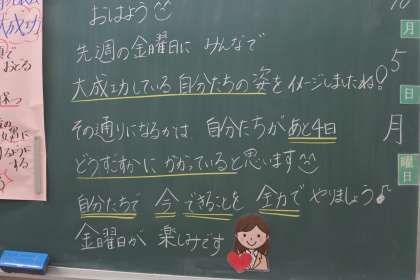 おはよう
先週の金曜日に みんなで
大成功している自分たちの姿をイメージしましたね!
その通りになるかは 自分たちがあと4日
どうすごすかに かかっていると思います
自分たちで 今 できることを 全力で やりましょう♪
金曜日が 楽しみです
月
5
日
月
曜日
大成功